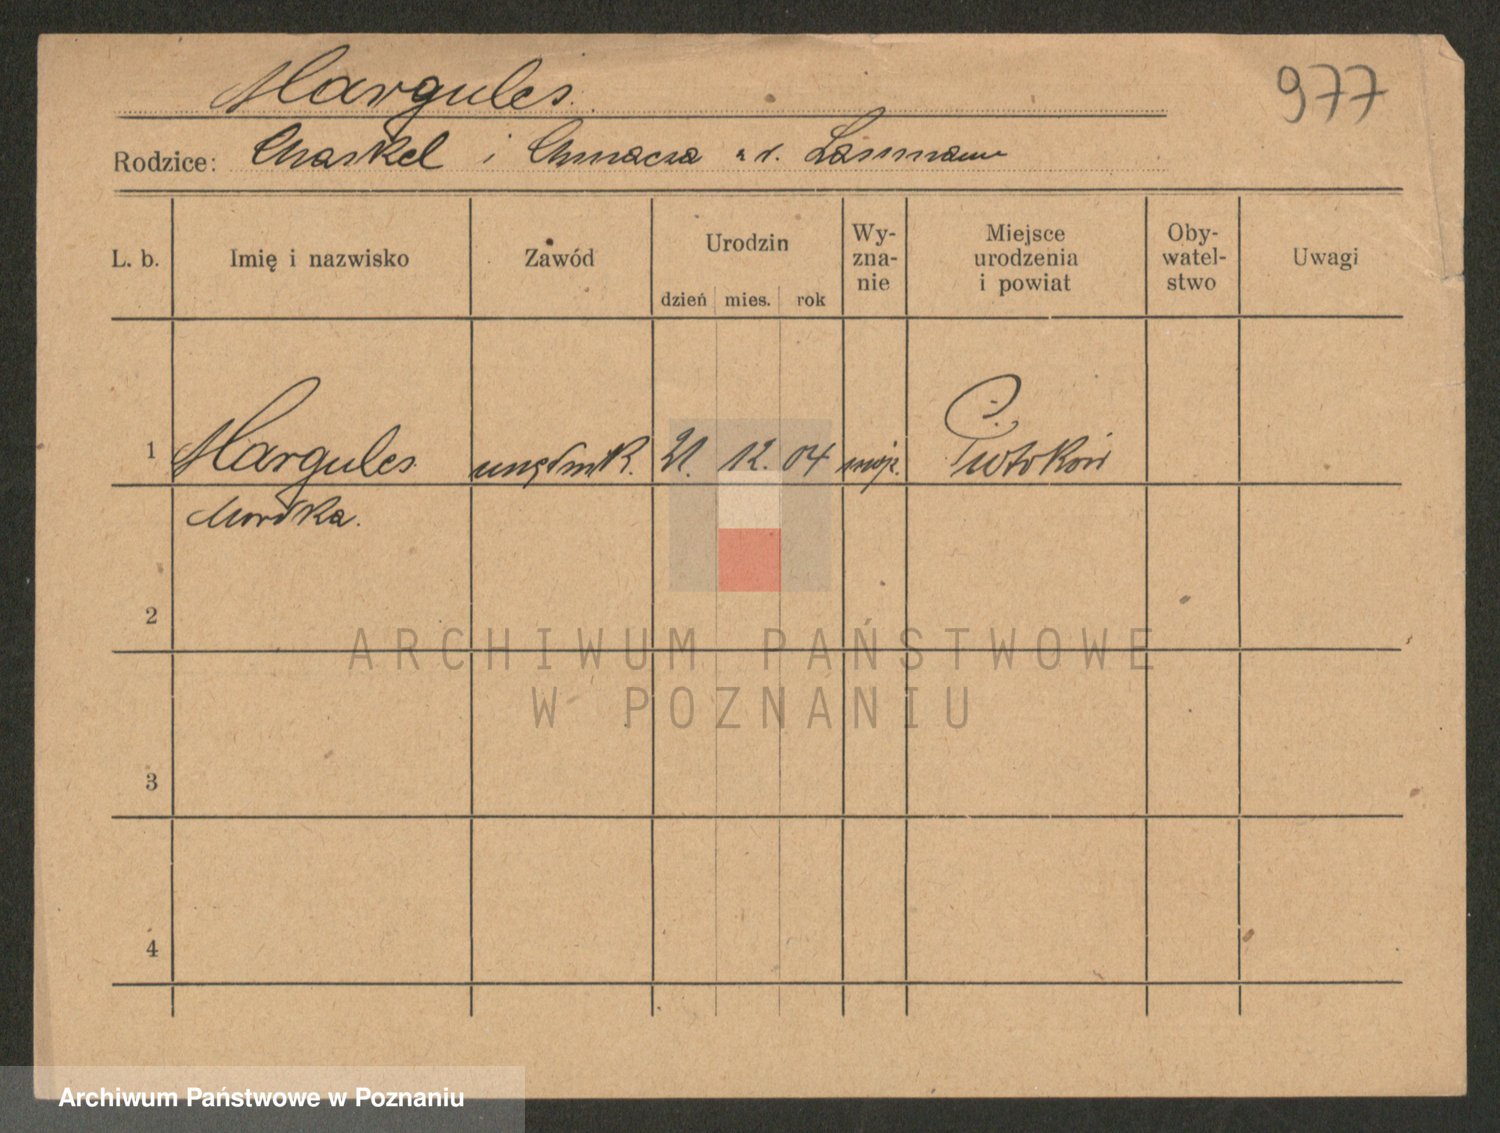 Margules
977
Rodzice: Chaskel i Chmacza z d. Lassmann
L. b. Imię i nazwisko Zawód Urodzin dzień mies. rok Wy-zna-nie Miejsce urodzenia i powiat Oby-watel-stwo Uwagi
1 Margules urzędnik. 21. 12. 04 mojż. Piotrków
Mordka.
2
ARCHIWUM PAŃSTWOWE
W POZNANIU
3
4
Archiwum Państwowe w Poznaniu